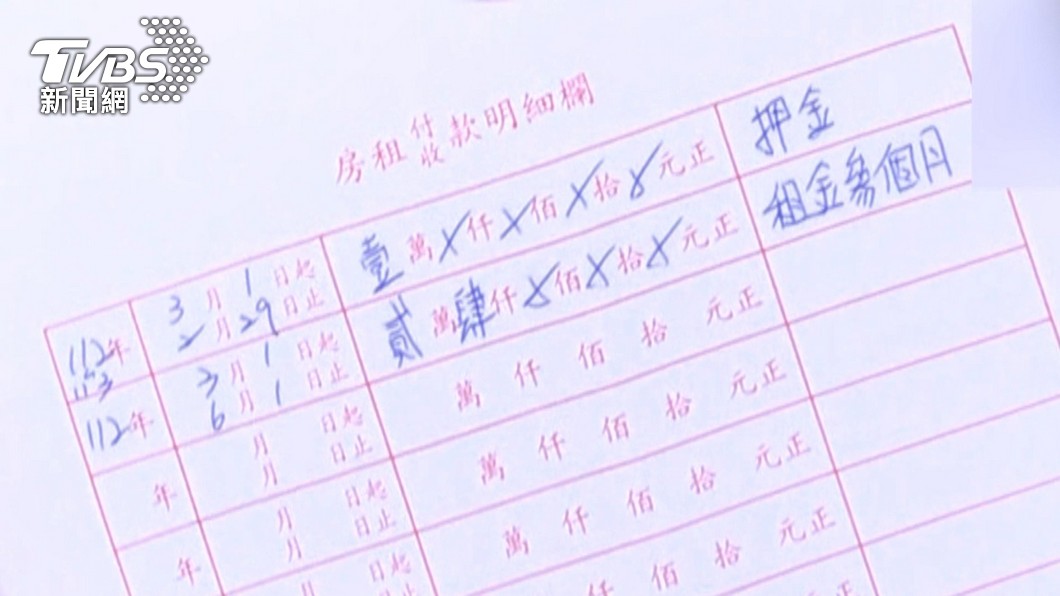 TVBS
新聞網
房租付收款明細欄
112年 3月 1日起 壹萬X仟X佰X拾X元正 押金
113 2月 29日止
112年 3月 1日起 貳萬肆仟X佰X拾X元正 租金參個月
6月 1日止
年 月 日起 萬 仟 佰 拾 元正
月 日止
年 月 日起 萬 仟 佰 拾 元正
月 日止
月 日起 萬 仟 佰 拾 元正
仟 佰 拾 元正